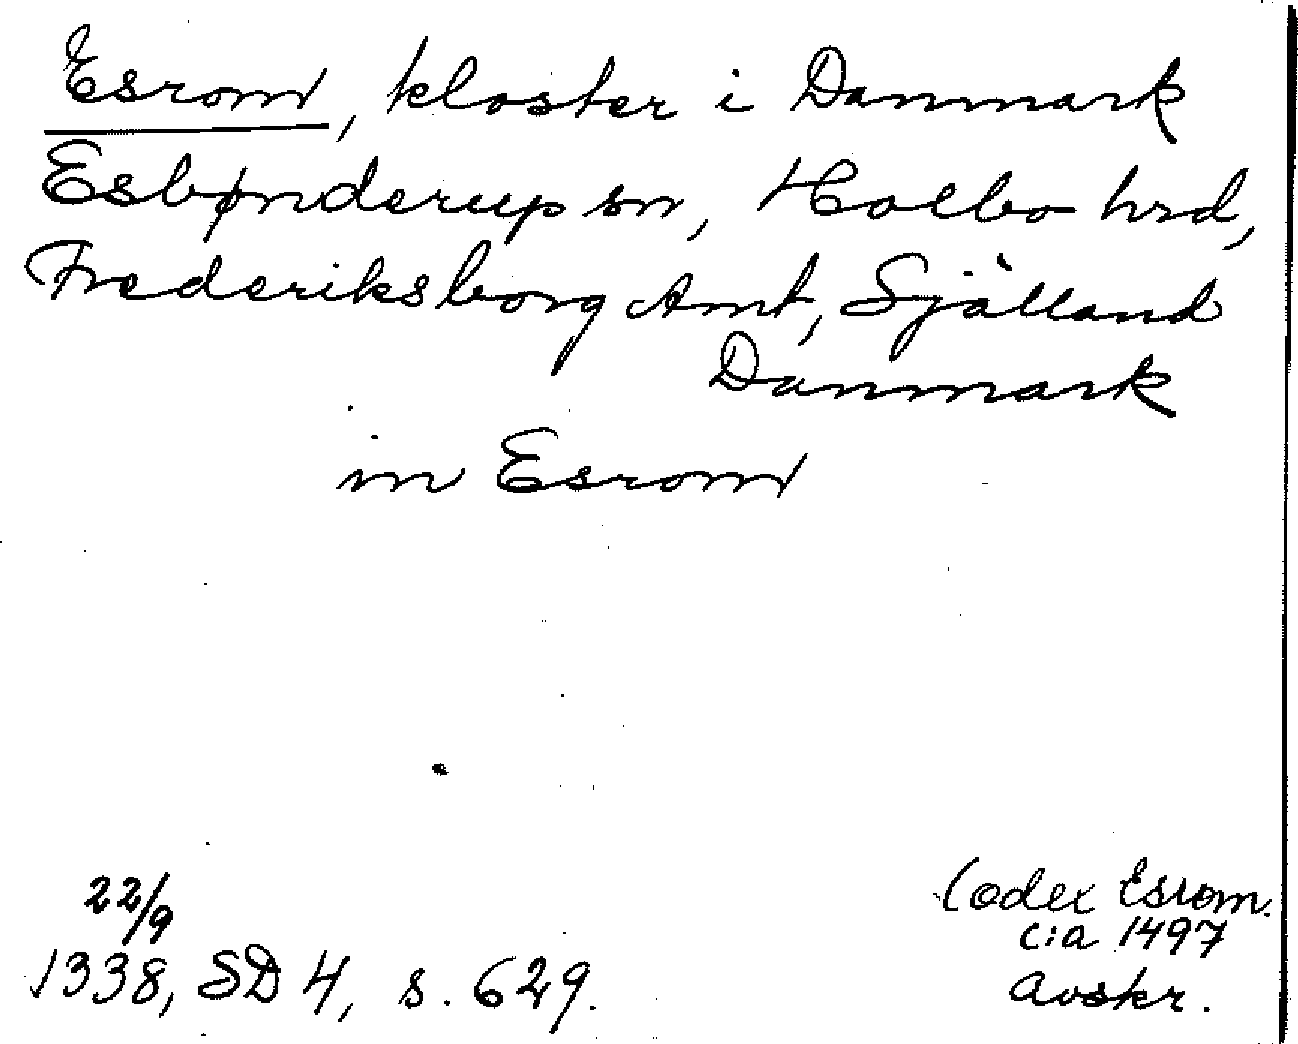 Esrom, kloster i Danmark
Esbønderup sn, Holbo hrd,
Frederiksborg Amt, Själland
Danmark
in Esrom
22/9
1338, SD 4, s. 629.
Codex Esrom.
c:a 1497
avskr.